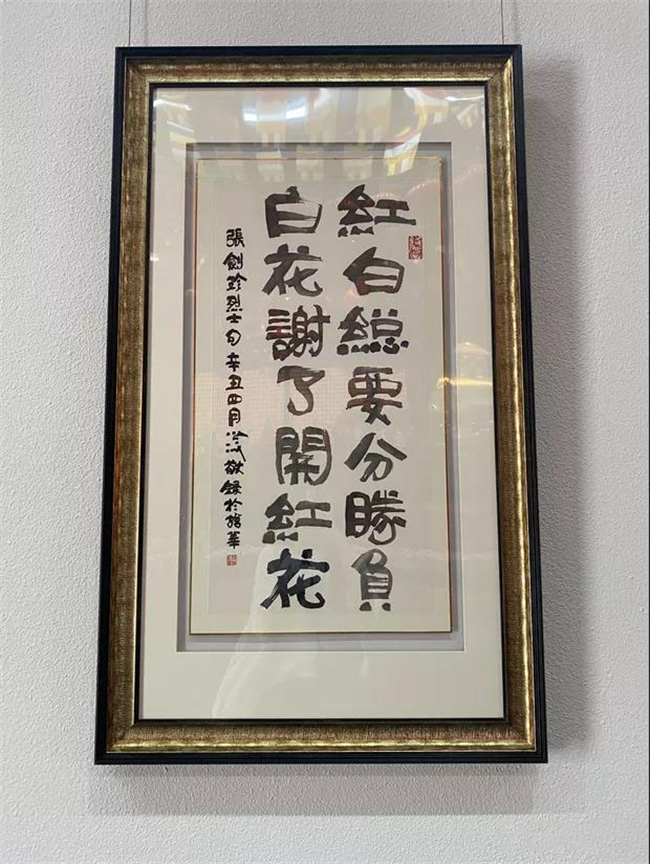 紅白総要分勝負
白花謝了開紅花
張劍珍烈士句 辛丑四月 敬録於清華